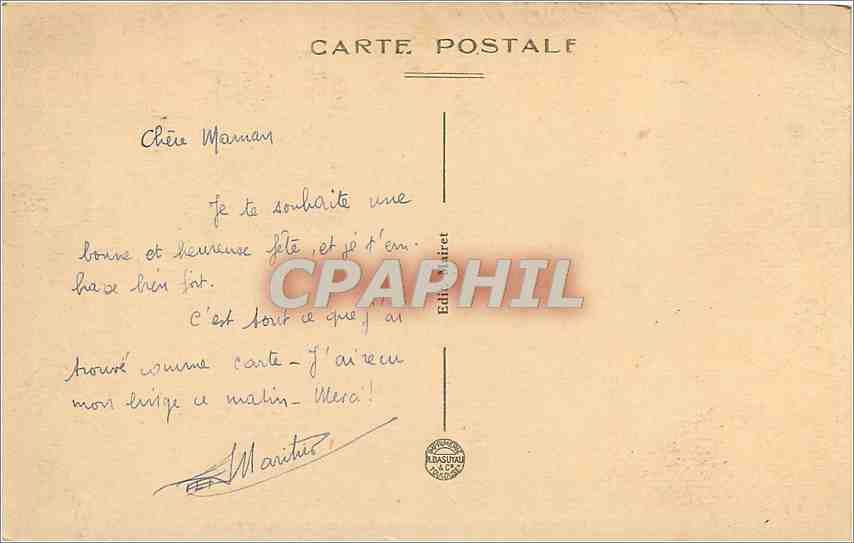 CARTE POSTALE
Chère Maman
Je te souhaite une
bonne et heureuse fête, et je t'em-
brasse bien fort.
C'est tout ce que j'ai
trouvé comme carte - J'ai reçu
mon linge ce matin - Merci!
Edit. Mairet
CPAPHIL
IMPRIMERIE
& Cie
TOULOUSE